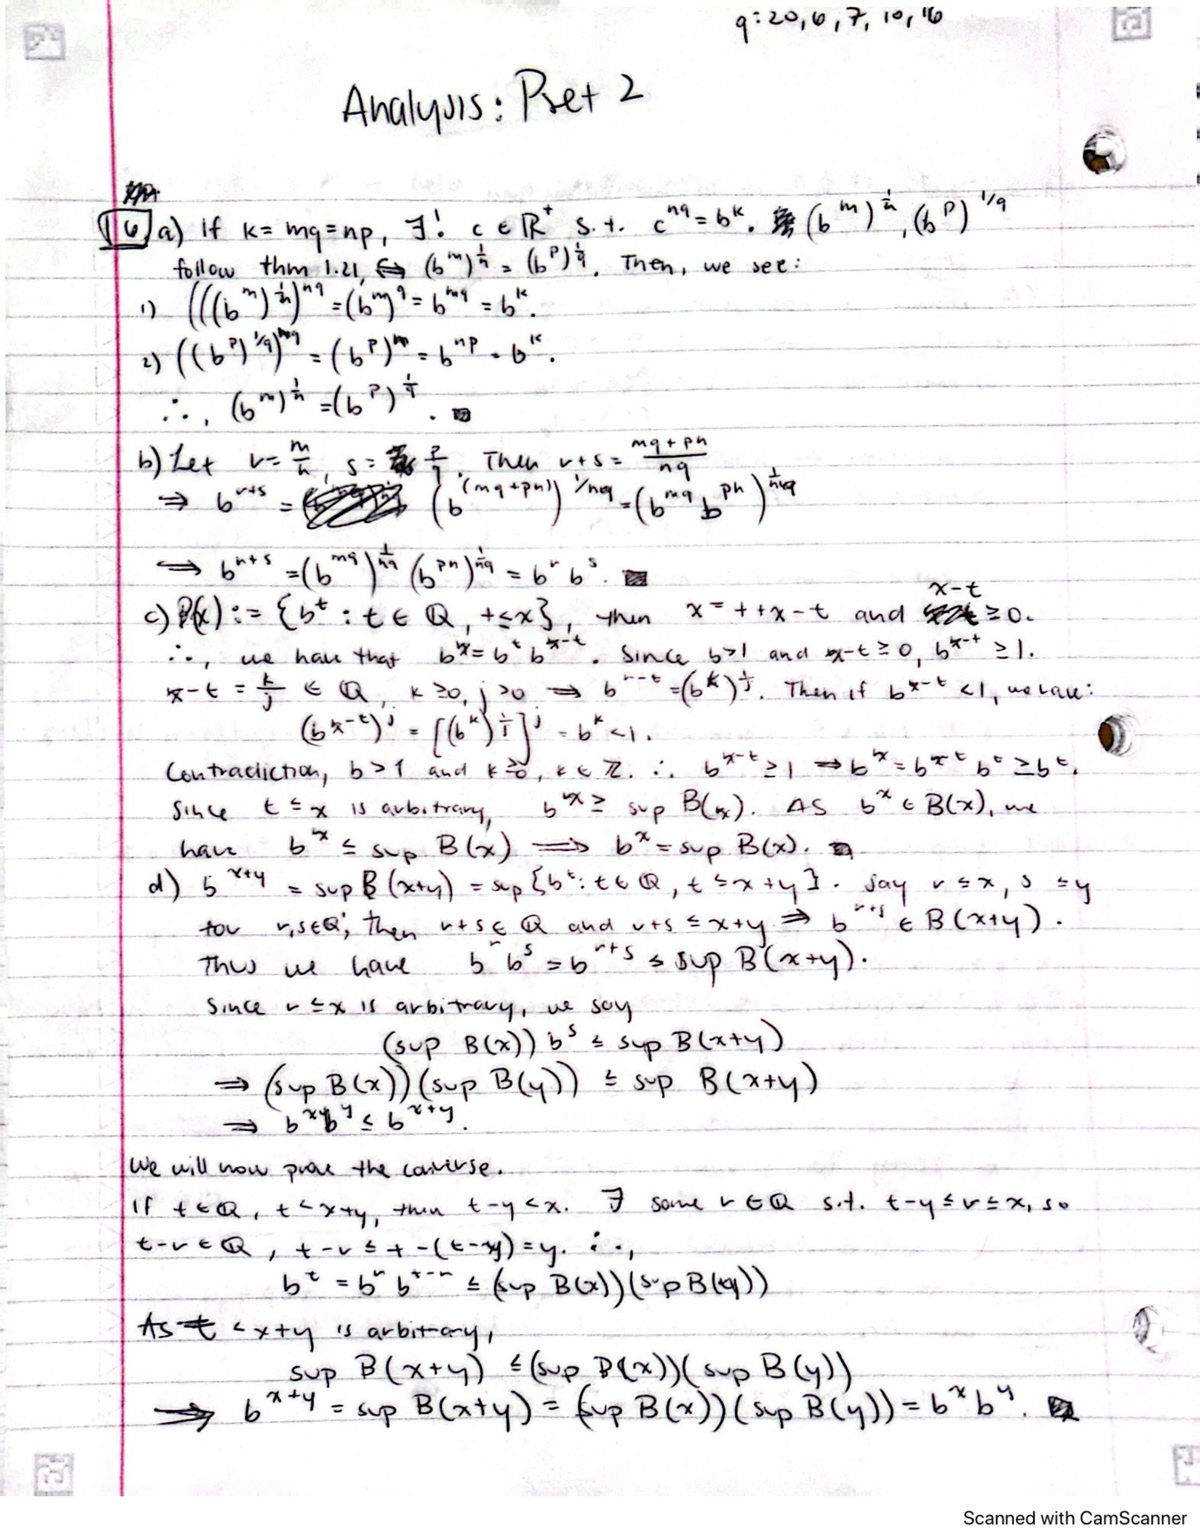 q: 20, 6, 7, 10, 16
Analysis: Pset 2
6 a) if k = mq = np, ∃! c ∈ ℝ⁺ s.t. c^{nq} = b^k. (b^m)^{1/n}, (b^p)^{1/q}
follow thm 1.21, ⇔ (b^m)^{1/n} = (b^p)^{1/q}. Then, we see:
1) (((b^m)^{1/n})^{nq} = (b^m)^q = b^{mq} = b^k.
2) ((b^p)^{1/q})^{nq} = (b^p)^n = b^{np} = b^k.
∴, (b^m)^{1/n} = (b^p)^{1/q}.
b) Let r = m/n, s = p/q. Then r+s = (mq+pn)/nq
⇒ b^{r+s} = (b^{(mq+pn)})^{1/nq} = (b^{mq} b^{pn})^{1/nq}
⇒ b^{r+s} = (b^{mq})^{1/nq} (b^{pn})^{1/nq} = b^r b^s.
c) B(x) := {b^t : t ∈ ℚ, t ≤ x}, then x = t + x - t and x-t ≥ 0.
∴, we have that b^x = b^t b^{x-t}. Since b>1 and x-t ≥ 0, b^{x-t} ≥ 1.
x-t = k/j ∈ ℚ, k ≥ 0, j > 0 ⇒ b^{r-t} = (b^k)^{1/j}. Then if b^{x-t} < 1, we have:
(b^{x-t})^j = [(b^k)^{1/j}]^j = b^k < 1.
Contradiction, b > 1 and k ≥ 0, k ∈ ℤ. ∴ b^{x-t} ≥ 1 ⇒ b^x = b^{x-t} b^t ≥ b^t.
Since t ≤ x is arbitrary, b^x ≥ sup B(x). As b^x ∈ B(x), we
have b^x ≤ sup B(x) ⟹ b^x = sup B(x).
d) b^{x+y} = sup B(x+y) = sup {b^t : t ∈ ℚ, t ≤ x+y}. Say r ≤ x, s ≤ y
for r,s ∈ ℚ; then r+s ∈ ℚ and r+s ≤ x+y ⇒ b^{r+s} ∈ B(x+y).
Thus we have b^r b^s = b^{r+s} ≤ sup B(x+y).
Since r ≤ x is arbitrary, we say
(sup B(x)) b^s ≤ sup B(x+y)
⇒ (sup B(x))(sup B(y)) ≤ sup B(x+y)
⇒ b^x b^y ≤ b^{x+y}.
We will now prove the converse.
If t ∈ ℚ, t < x+y, then t-y < x. ∃ some r ∈ ℚ s.t. t-y ≤ r ≤ x, so
t-r ∈ ℚ, t-r ≤ t-(t-y) = y. ∴,
b^t = b^r b^{t-r} ≤ (sup B(x))(sup B(y))
As t < x+y is arbitrary,
sup B(x+y) ≤ (sup B(x))(sup B(y))
⟹ b^{x+y} = sup B(x+y) = (sup B(x))(sup B(y)) = b^x b^y.
Scanned with CamScanner